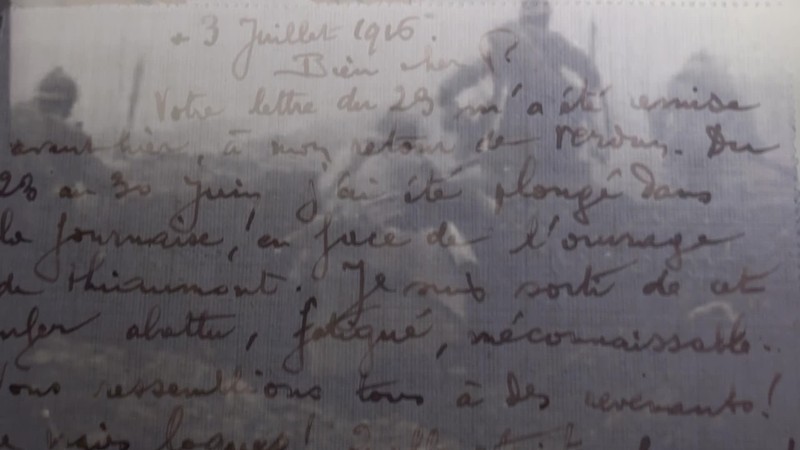 3 Juillet 1916.
Bien cher
Votre lettre du 23 m'a été remise
avant hier, à mon retour de Verdun. Du
23 au 30 Juin j'ai été plongé dans
la fournaise, en face de l'ouvrage
de Thiaumont. Je suis sorti de cet
nfer abattu, fatigué, méconnaissable.
ous ressemblions tous à des revenants!
vrais loques!